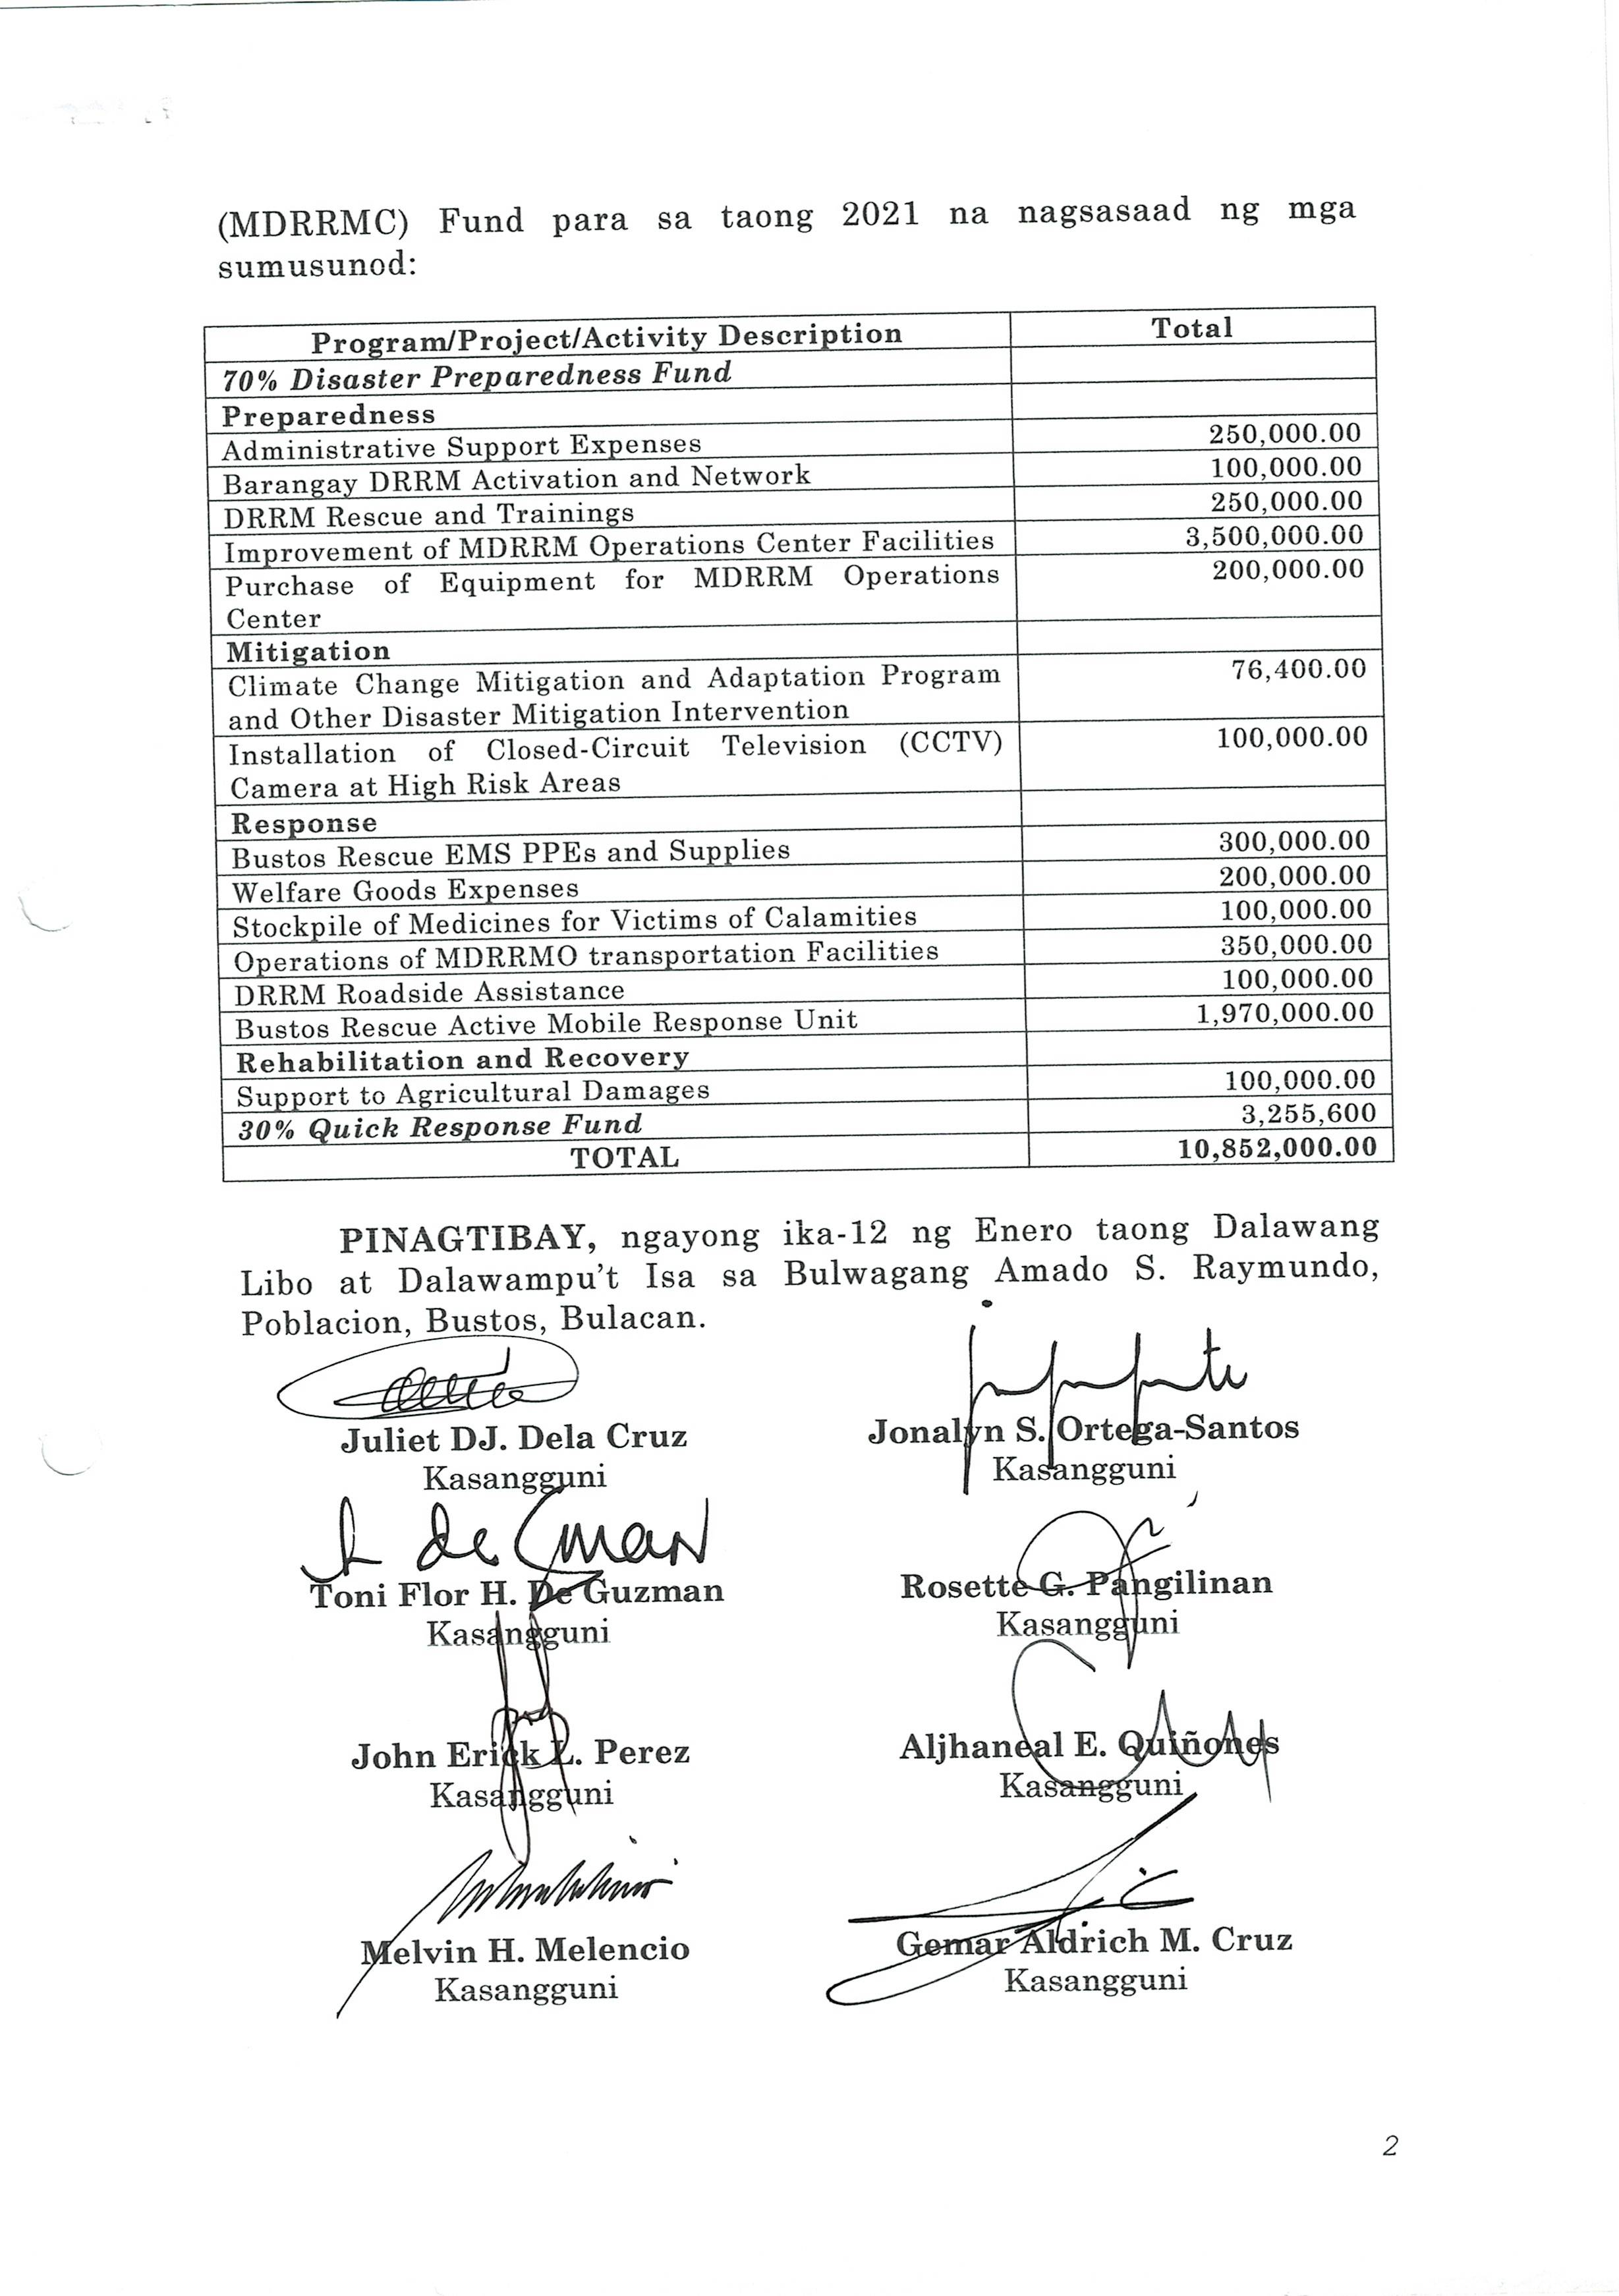 (MDRRMC) Fund para sa taong 2021 na nagsasaad ng mga
sumusunod:
Program/Project/Activity Description Total
70% Disaster Preparedness Fund
Preparedness
Administrative Support Expenses 250,000.00
Barangay DRRM Activation and Network 100,000.00
DRRM Rescue and Trainings 250,000.00
Improvement of MDRRM Operations Center Facilities 3,500,000.00
Purchase of Equipment for MDRRM Operations 200,000.00
Center
Mitigation
Climate Change Mitigation and Adaptation Program 76,400.00
and Other Disaster Mitigation Intervention
Installation of Closed-Circuit Television (CCTV) 100,000.00
Camera at High Risk Areas
Response
Bustos Rescue EMS PPEs and Supplies 300,000.00
Welfare Goods Expenses 200,000.00
Stockpile of Medicines for Victims of Calamities 100,000.00
Operations of MDRRMO transportation Facilities 350,000.00
DRRM Roadside Assistance 100,000.00
Bustos Rescue Active Mobile Response Unit 1,970,000.00
Rehabilitation and Recovery
Support to Agricultural Damages 100,000.00
30% Quick Response Fund 3,255,600
TOTAL 10,852,000.00
PINAGTIBAY, ngayong ika-12 ng Enero taong Dalawang
Libo at Dalawampu't Isa sa Bulwagang Amado S. Raymundo,
Poblacion, Bustos, Bulacan.
Juliet DJ. Dela Cruz Jonalyn S. Ortega-Santos
Kasangguni Kasangguni
Toni Flor H. De Guzman Rosette G. Pangilinan
Kasangguni Kasangguni
John Erick L. Perez Aljhaneal E. Quiñones
Kasangguni Kasangguni
Melvin H. Melencio Gemar Aldrich M. Cruz
Kasangguni Kasangguni
2